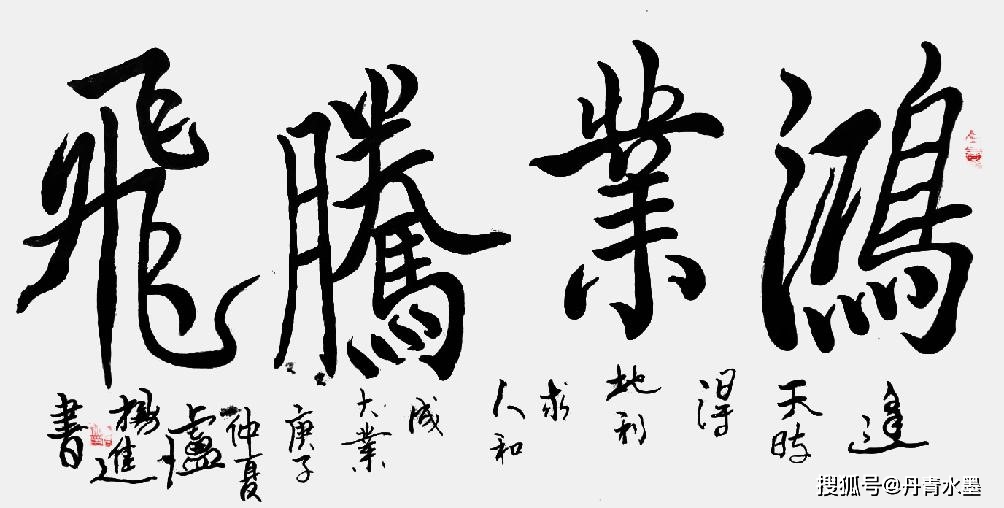 鴻業騰飛
逢
天時
得
地利
求
人和
成
大業
庚子
仲夏
楊進
書
搜狐号@丹青水墨